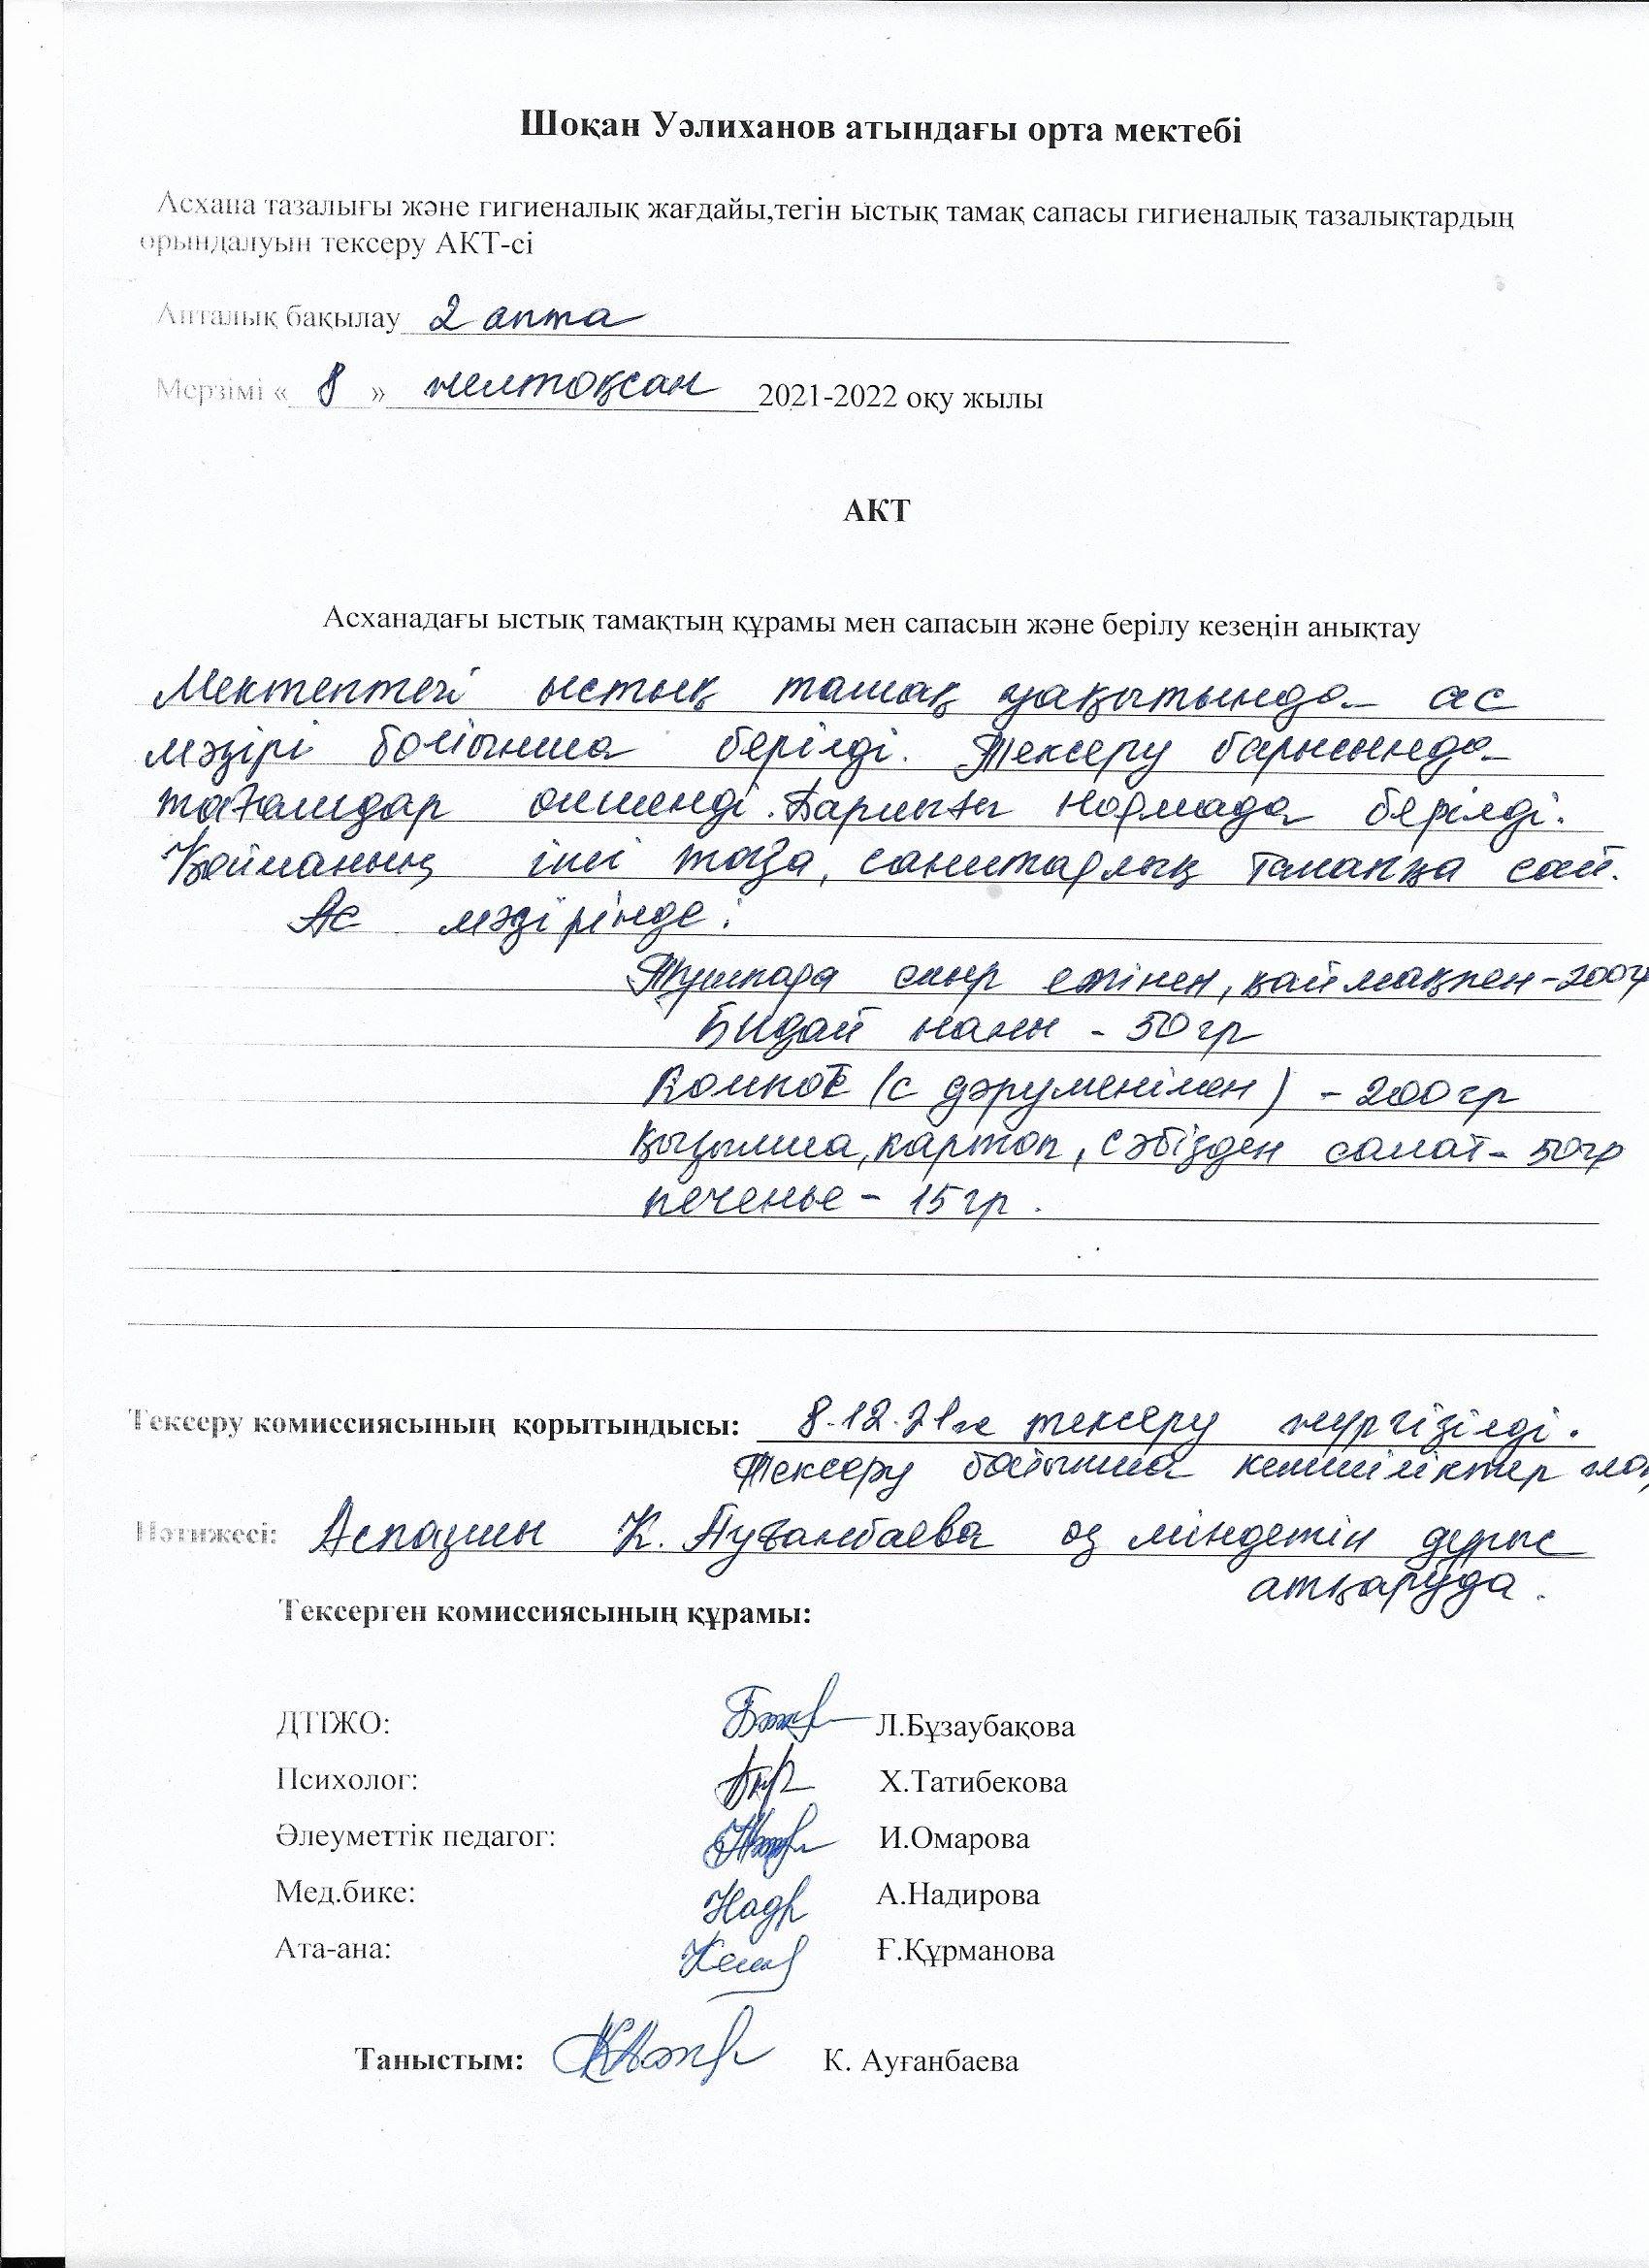 Шоқан Уәлиханов атындағы орта мектебі
Асхана тазалығы және гигиеналық жағдайы,тегін ыстық тамақ сапасы гигиеналық тазалықтардың
орындалуын тексеру АКТ-сі
Апталық бақылау 2 апта
Мерзімі « 8 » желтоқсан 2021-2022 оқу жылы
АКТ
Асханадағы ыстық тамақтың құрамы мен сапасын және берілу кезеңін анықтау
Мектептегі ыстық тамақ уақытында ас
мәзірі бойынша берілді. Тексеру барысында
тағамдар өлшенді. Барлығы нормада берілді.
Қойманың іші таза, санитарлық талапқа сай.
Ас мәзірінде:
Тушпара сиыр етінен, қаймақпен-200гр
Бидай наны - 50 гр
Компот (с дәруменімен) - 200 гр
Қызылша, картоп, сәбізден салат - 50гр
печенье - 15 гр.
Тексеру комиссиясының қорытындысы: 8.12.21ж тексеру жүргізілді.
Тексеру бойынша кемшіліктер жоқ
Нәтижесі: Аспазшы К. Ауғанбаева өз міндетін дұрыс
атқаруда.
Тексерген комиссиясының құрамы:
ДТІЖО: Л.Бұзаубақова
Психолог: Х.Татибекова
Әлеуметтік педагог: И.Омарова
Мед.бике: А.Надирова
Ата-ана: Ғ.Құрманова
Таныстым: К. Ауғанбаева